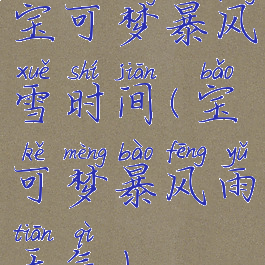 宝可梦暴风
xuě shí jiān bǎo
雪时间(宝
kě mèng bào fēng yǔ
可梦暴风雨
tiān qì
天气)